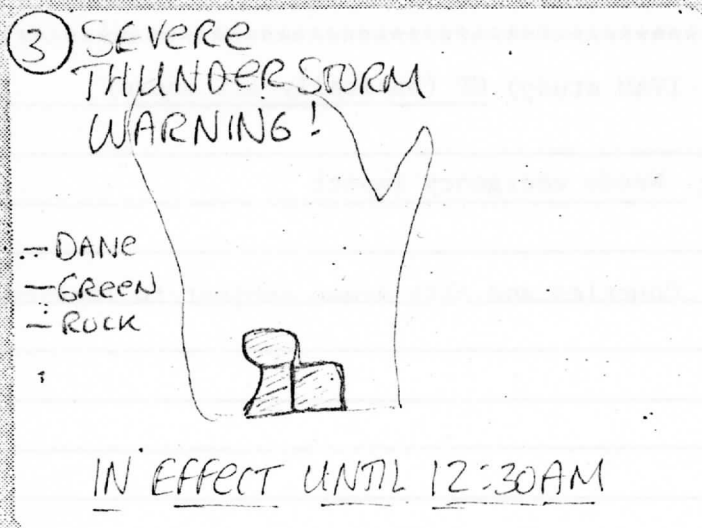 3 SEVERE
THUNDERSTORM
WARNING!
- DANE
- GREEN
- ROCK
IN EFFECT UNTIL 12:30AM